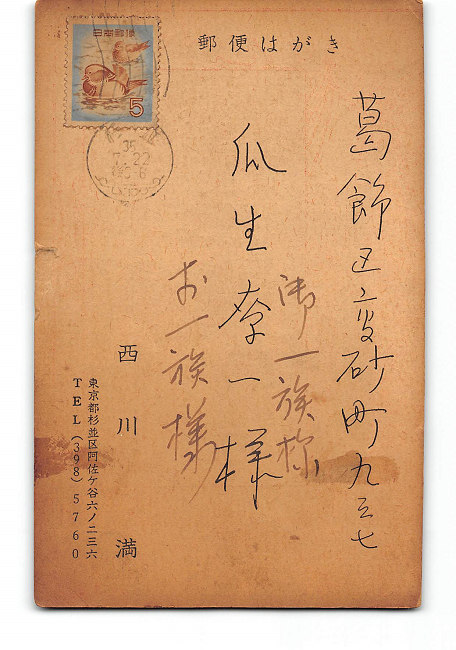 郵便はがき
日本郵便
5
35
7.22
葛飾区
砂町九三七
瓜生
一様
御一族様
お一族様
西川満
東京都杉並区阿佐ケ谷六ノ二三六
TEL(398)5760